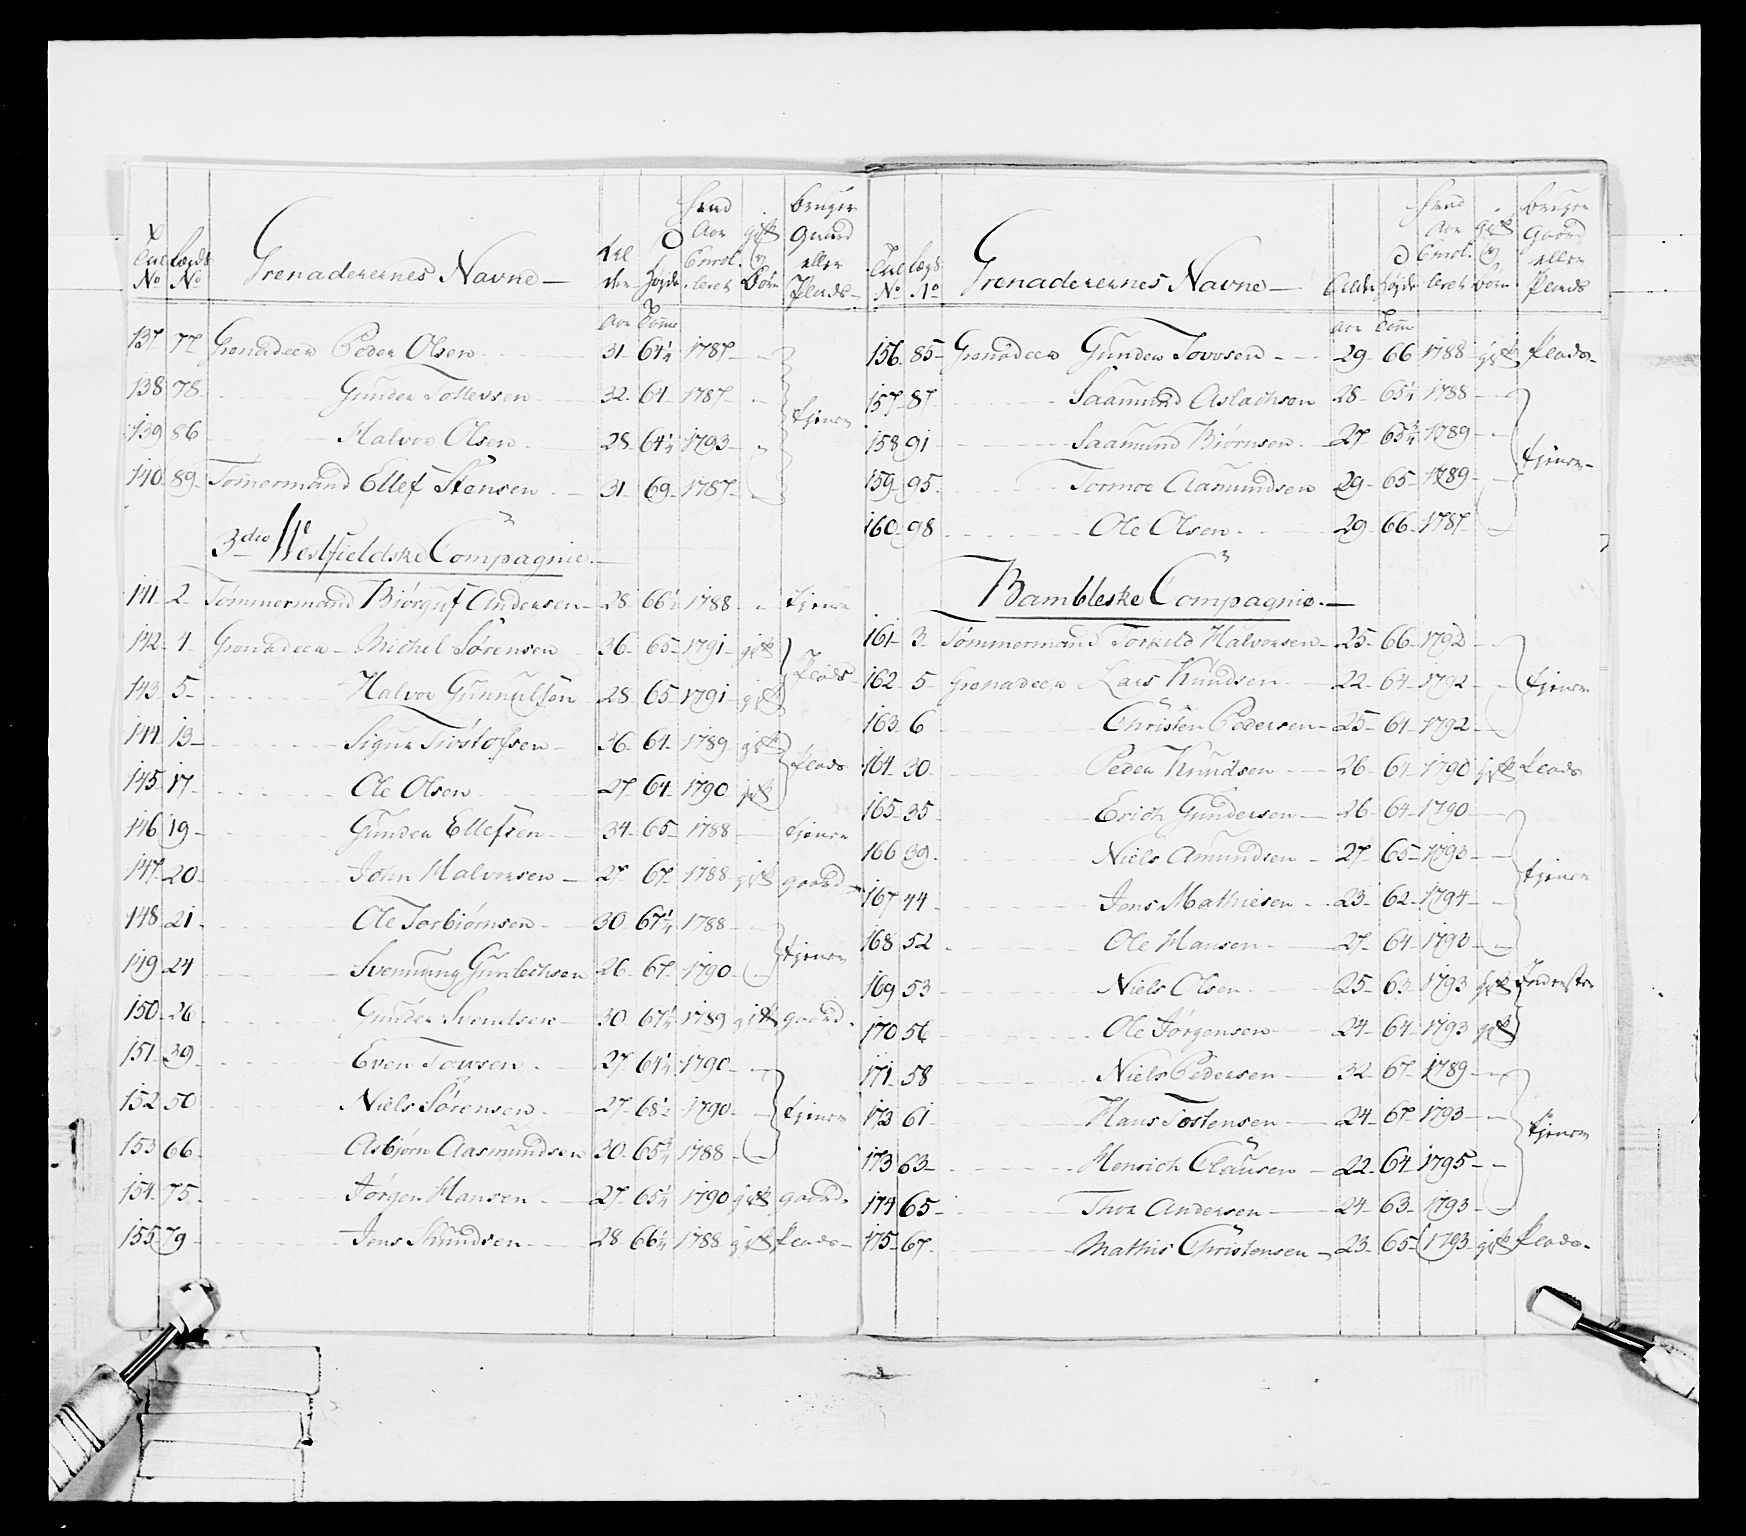 Lægds
No No
Grenaderernes Navne —
Alder
Høyde
hvad Aar Enrolleret
gift og Børn
bruger Gaard eller Plads
Aar Tom̄
137 77 Grenadeer Peder Olsen 31 64¼ 1787
138 78 Gunder Tollevsen 32 64 1787 tjener
139 86 Halvor Olsen 28 64¼ 1793
140 89 Tømermand Ellef Stensen 31 69 1787
3die Westfieldske Compagnie.
141 2 Tømmermand Biørguf Andersen 28 66½ 1788 tjener
142 4 Grenadeer Michel Sørensen 36 65 1791 gift Plads
143 5 Halvor Gunnulfsen 28 65 1791 gift
144 13 Sigur Tiostofsen 36 64 1789 gift Plads
145 17 Ole Olsen 27 64 1790 gift
146 19 Gunder Ellefsen 34 65 1788 tjener
147 20 John Halvorsen 27 67 1788 gift gaard
148 21 Ole Torbiørnsen 30 67¼ 1788 tjener
149 24 Svennung Gunlechsen 26 67 1790
150 26 Gunder Svendsen 30 67¼ 1789 gift gaard
151 39 Even Tovsen 27 64½ 1790
152 50 Niels Sørensen 27 68½ 1790 tjener
153 66 Asbjørn Aasmundsen 30 65¾ 1788
154 75 Jørgen Hansen 27 65¼ 1790 gift gaard
155 79 Jens Knudsen 28 66¼ 1788 gift Plads
Lægds
No No
Grenaderernes Navne —
Alder
Høyde
hvad Aar Enrolleret
gift og Børn
bruger Gaard eller Plads
Aar Tom̄
156 85 Grenadeer Gunder Tovsen 29 66 1788 gift Plads
157 87 Saamund Aslachsen 28 65¼ 1788
158 91 Saamund Biørnsen 27 65¾ 1789 tjener
159 95 Tormoe Aamundsen 29 65 1789
160 98 Ole Olsen 29 66 1787
Bambleske Compagnie.
161 3 Tømmermand Torkild Halvorsen 25 66 1792
162 5 Grenadeer Lars Knudsen 22 64 1792 tjener
163 6 Christen Pedersen 25 61 1792
164 30 Peder Knudsen 26 61 1790 gift Plads
165 35 Erich Gundersen 26 64 1790
166 39 Niels Amundsen 27 65 1793
167 44 Jens Mathiesen 23 62 1794 tjener
168 52 Ole Hansen 27 64 1793
169 53 Niels Olsen 25 63 1793 gift Inderster
170 56 Ole Jørgensen 24 64 1793 gift
171 58 Niels Pedersen 32 67 1789
173 61 Hans Tostensen 24 67 1793 tjener
173 63 Henrich Clausen 22 64 1795
174 65 Thor Andersen 24 63 1793
175 67 Mathis Christensen 23 65 1793 gift Plads